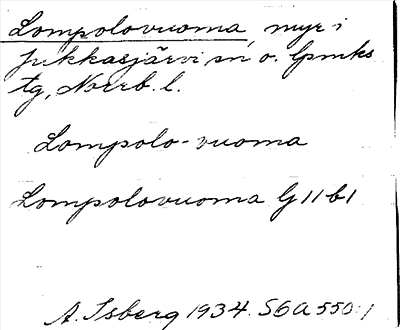 Lompolovuoma, myr i
Jukkasjärvi sn o. Lpmks
tg, Norrb. l.
Lompolo-vuoma
Lompolovuoma G11b1
A. Isberg 1934. S6A550:1